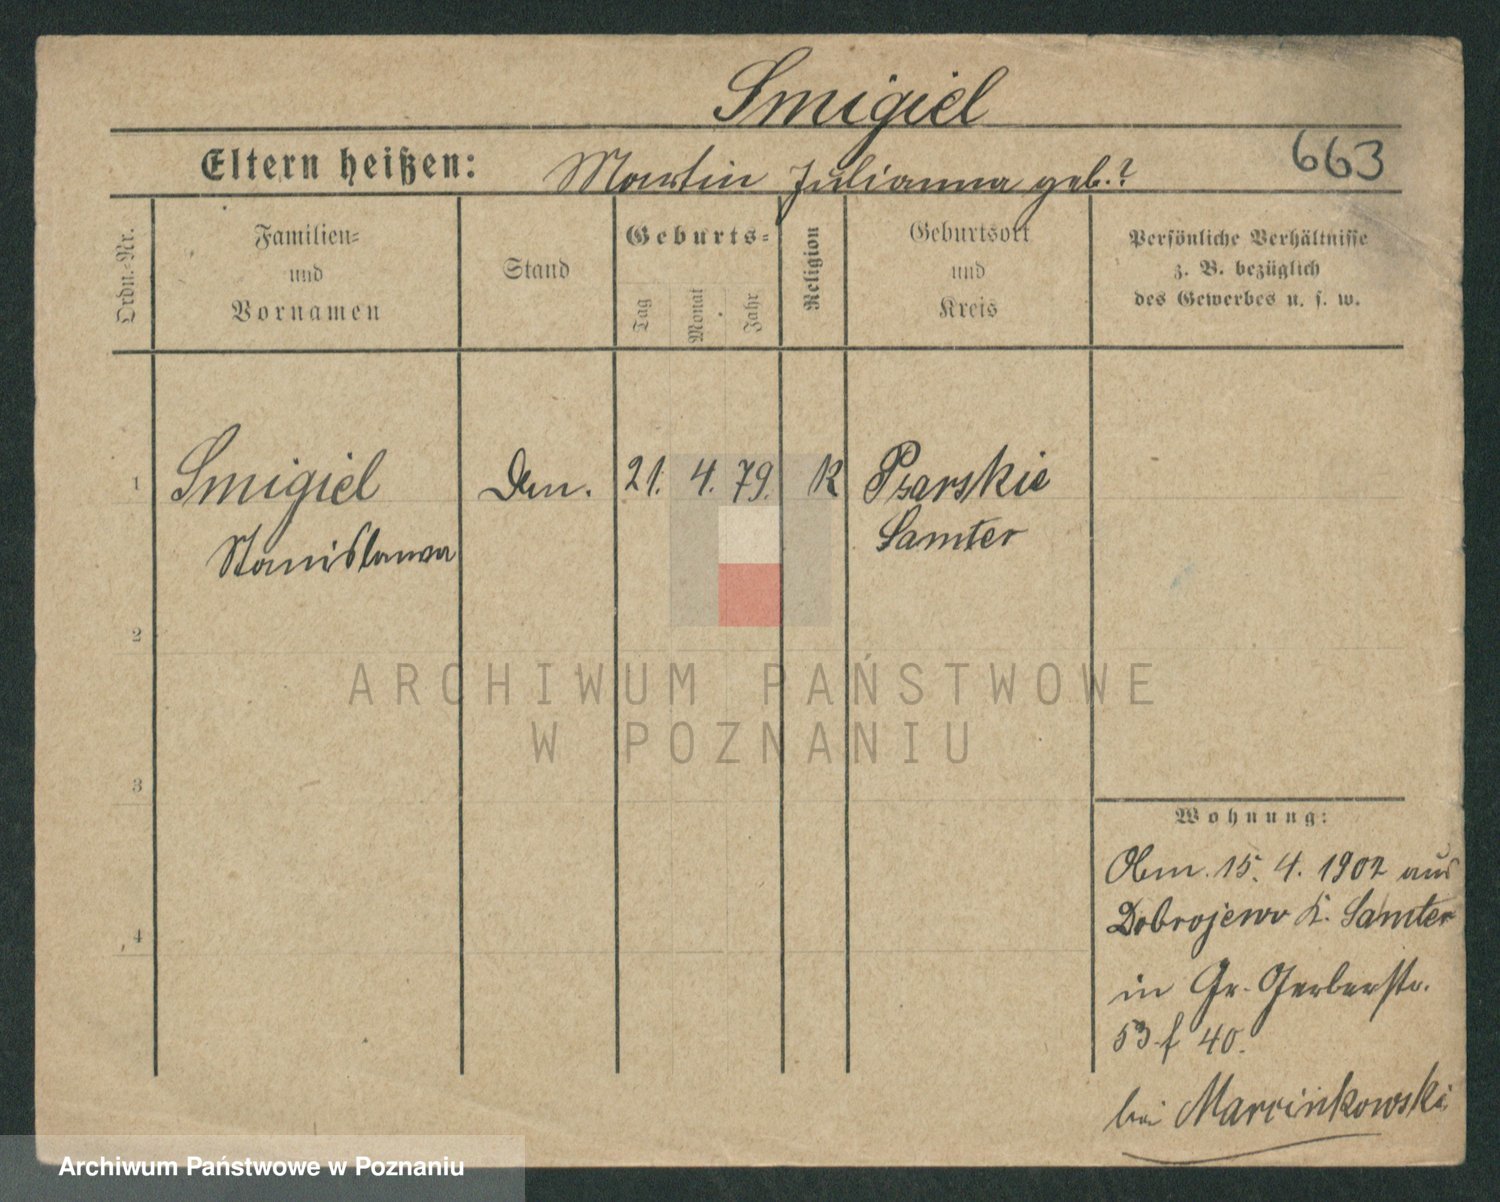 Smigiel
663
Eltern heißen: Martin Julianna geb.?
Ordn.-Nr.
Familien- und Vornamen
Stand
Geburts-
Tag
Monat
Jahr
Religion
Geburtsort und Kreis
Persönliche Verhältnisse
z. B. bezüglich
des Gewerbes u. s. w.
1 Smigiel 21. 4. 79. K Psarskie
Stanislawa Samter
2
ARCHIWUM PAŃSTWOWE
W POZNANIU
3
Wohnung:
15. 4. 1902 aus
4 Dobrojewo K. Samter
in Gr. Gerberstr.
53 f 40.
bei Marcinkowski
Archiwum Państwowe w Poznaniu